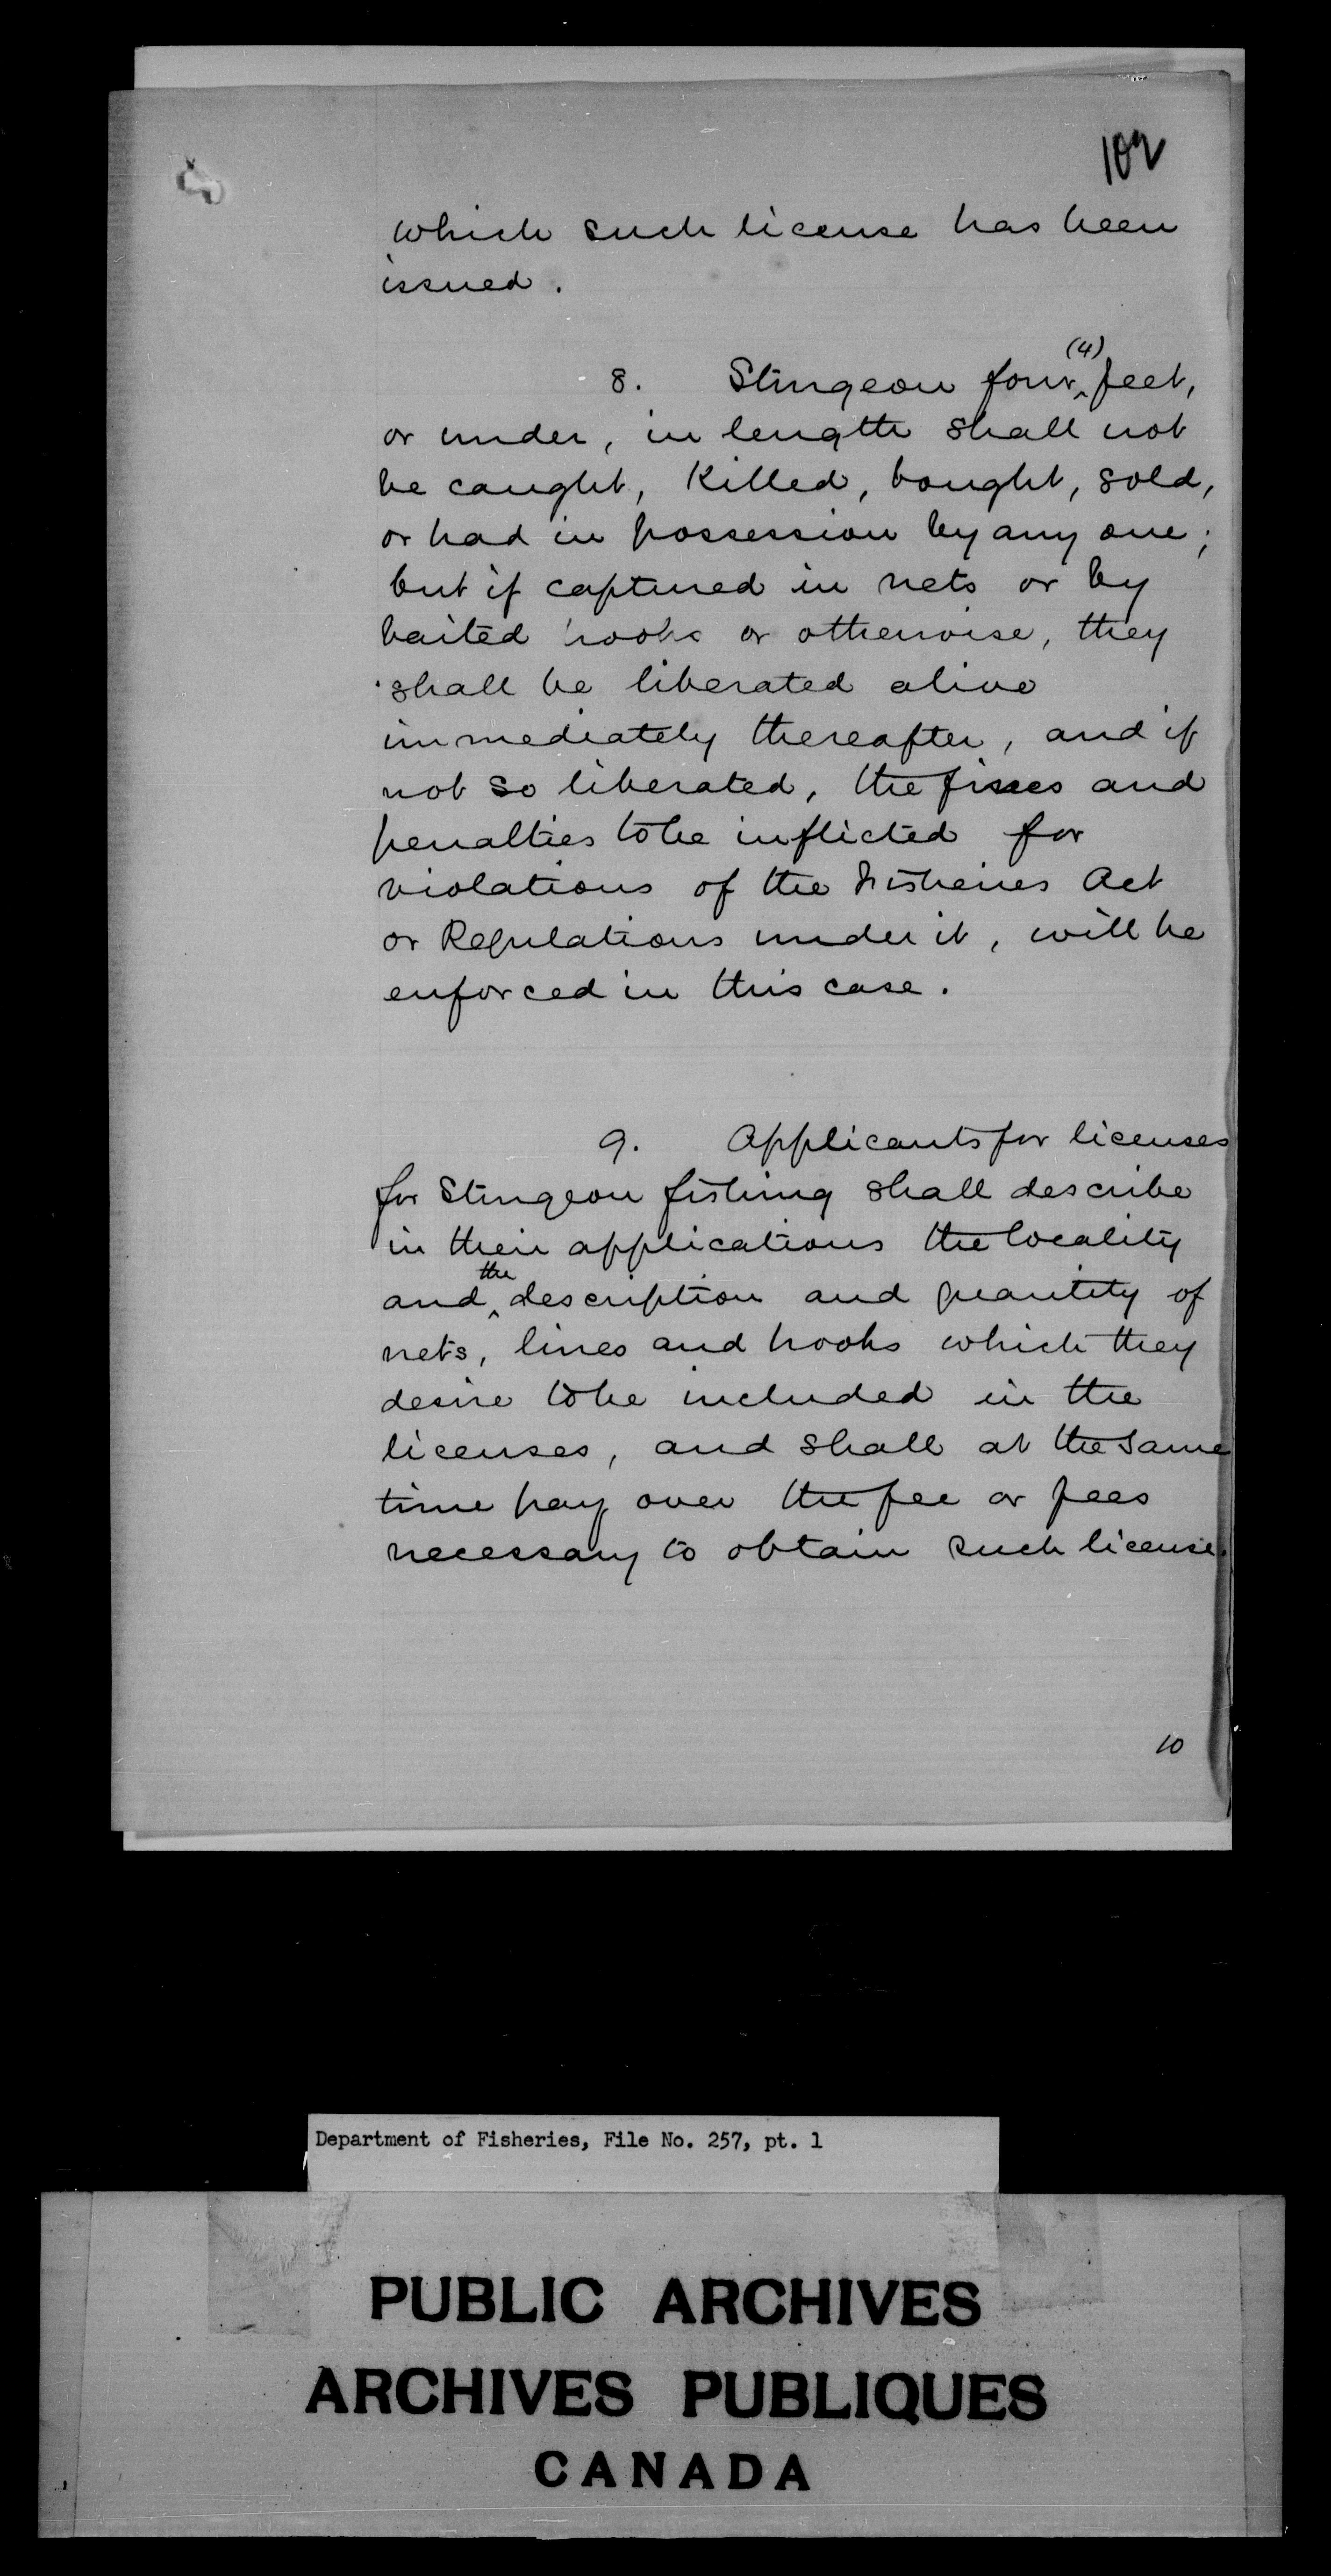 102
which such license has been
issued.
8. Sturgeon four (4) feet,
or under, in length shall not
be caught, killed, bought, sold,
or had in possession by any one;
but if captured in nets or by
baited hooks or otherwise, they
shall be liberated alive
immediately thereafter, and if
not so liberated, the fines and
penalties to be inflicted for
violations of the Fisheries Act
or Regulations under it, will be
enforced in this case.
9. Applicants for licenses
for Sturgeon fishing shall describe
in their applications the locality
and the description and quantity of
nets, lines and hooks which they
desire to be included in the
licenses, and shall at the same
time pay over the fee or fees
necessary to obtain such license.
10
Department of Fisheries, File No. 257, pt. 1
PUBLIC ARCHIVES
ARCHIVES PUBLIQUES
CANADA